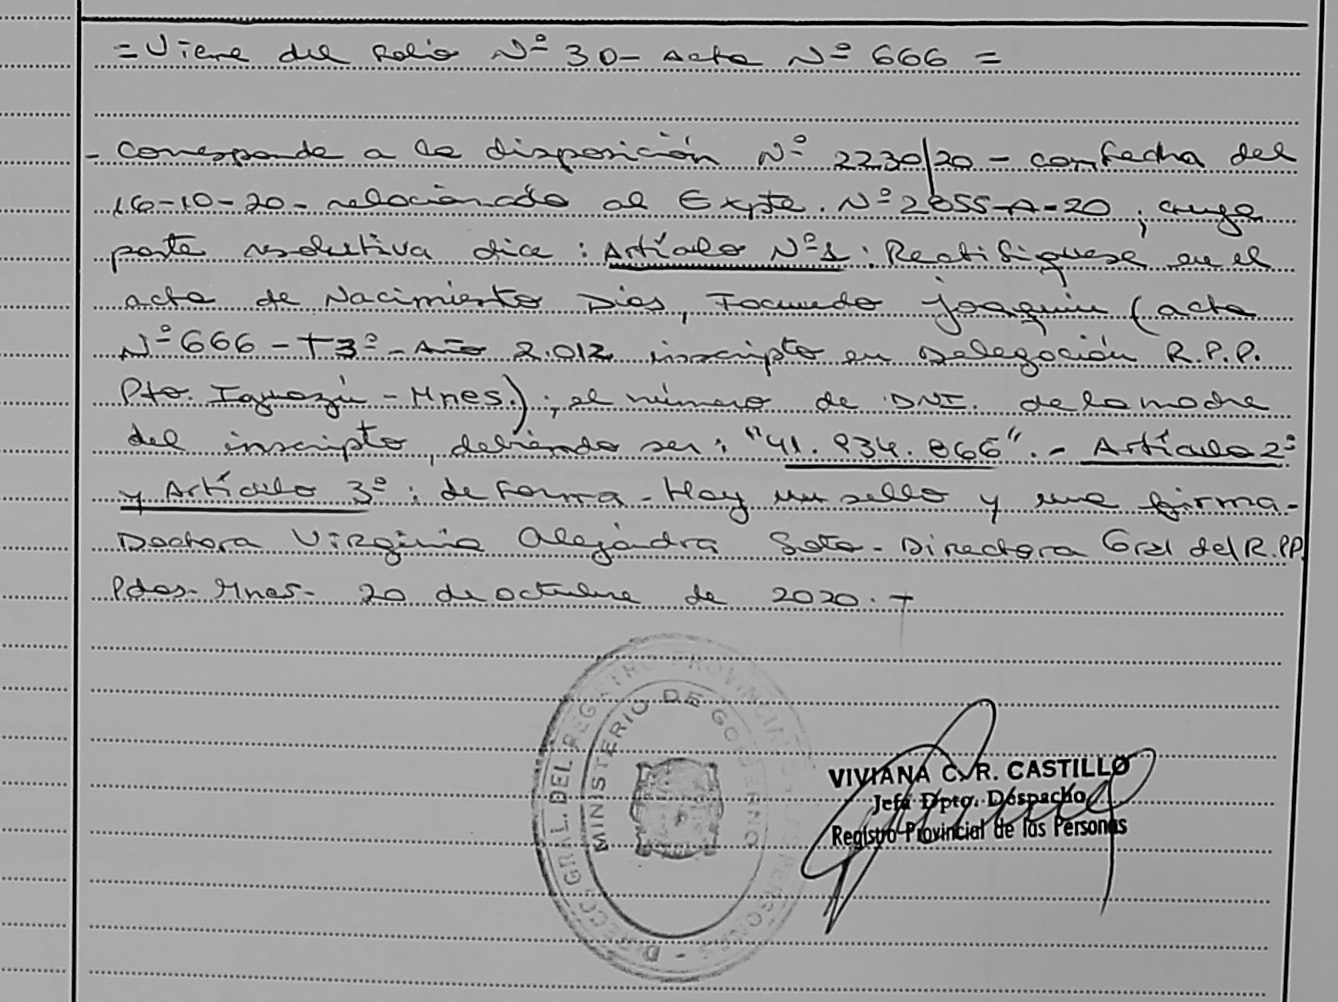 = Viene del folio Nº 30 - Acta Nº 666 =
- Corresponde a la disposición Nº 2230/20 - con fecha del
16-10-20 - relacionado al Expte. Nº 2655-A-20, cuya
parte resolutiva dice: Artículo Nº1: Rectifiquese en el
acta de Nacimiento Dias, Facundo Joaquin (acta
Nº 666 - T3º - Año 2.012 inscripto en Delegación R.P.P.
Pto. Iguazú - Mnes.); el número de DNI. de la madre
del inscripto, debiendo ser: "41.934.866". - Artículo 2º
y Artículo 3º: de forma - Hay un sello y una firma -
Doctora Virginia Alejandra Soto - Directora Gral del R.PP.
Pdas - Mnes - 20 de octubre de 2020. -
DIRECC. GRAL. DEL REGISTRO PROVINCIAL DE LAS PERSONAS -
MINISTERIO DE GOBIERNO
VIVIANA C. R. CASTILLO
Jefa Dpto. Despacho
Registro Provincial de las Personas